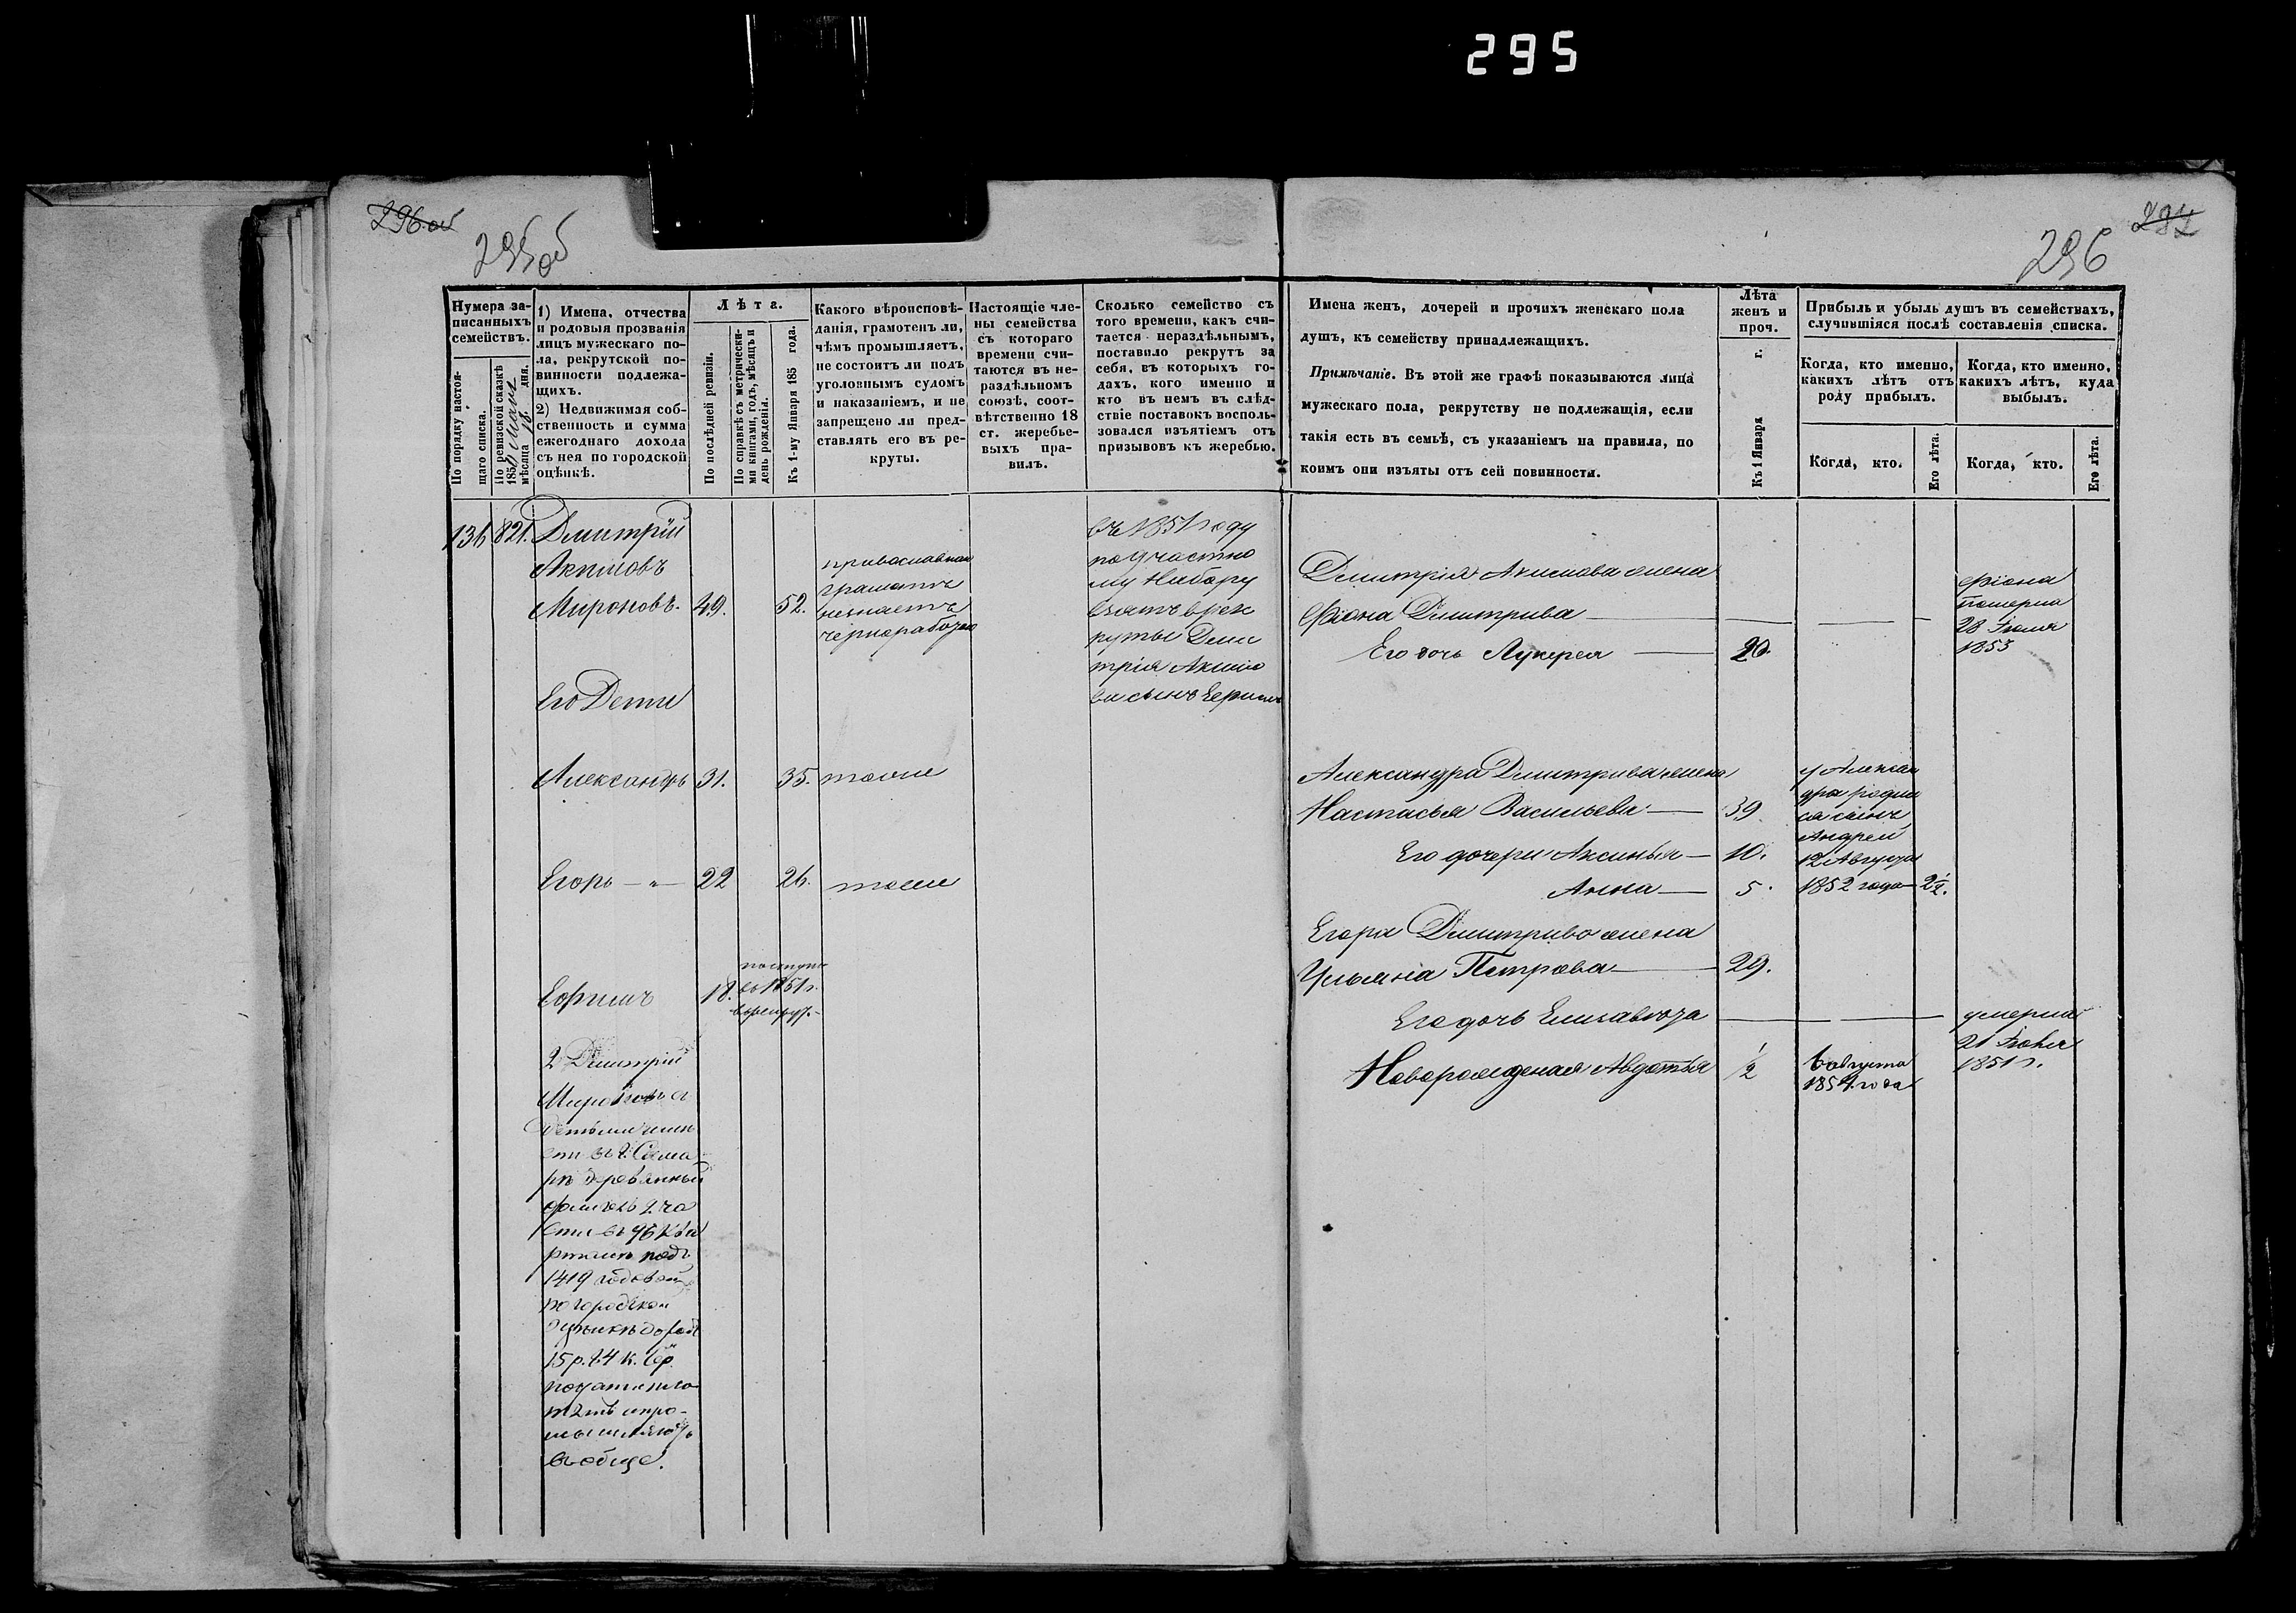 295
296 об
295 об
297
296
Нумера за-
писанныхъ
семействъ.
По порядку настоя-
щаго списка.
По ревизской сказкѣ
185 мѣсяца дня.
1) Имена, отчества
и родовыя прозванія
лицъ мужескаго по-
ла, рекрутской по-
винности подлежа-
щихъ.
2) Недвижимая соб-
ственность и сумма
ежегоднаго дохода
съ нея по городской
оцѣнкѣ.
Лѣта.
По послѣдней ревизіи.
По справкѣ съ метрически-
ми книгами, годъ, мѣсяцъ и
день рожденія.
Къ 1-му Января 185 года.
Какого вѣроисповѣ-
данія, грамотенъ ли,
чѣмъ промышляетъ,
не состоитъ ли подъ
уголовнымъ судомъ
и наказаніемъ, и не
запрещено ли пред-
ставлять его въ ре-
круты.
Настоящіе чле-
ны семейства
съ котораго
времени счи-
таются въ не-
раздѣльномъ
союзѣ, соот-
вѣтственно 18
ст. жеребье-
выхъ пра-
вилъ.
Сколько семейство съ
того времени, какъ счи-
тается нераздѣльнымъ,
поставило рекрутъ за
себя, въ которыхъ го-
дахъ, кого именно и
кто въ немъ въ слѣд-
ствіе поставокъ восполь-
зовался изъятіемъ отъ
призывовъ къ жеребью.
Имена женъ, дочерей и прочихъ женскаго пола
душъ, къ семейству принадлежащихъ.
Примѣчаніе. Въ этой же графѣ показываются лица
мужескаго пола, рекрутству не подлежащія, если
такія есть въ семьѣ, съ указаніемъ на правила, по
коимъ они изъяты отъ сей повинности.
Лѣта
женъ и
проч.
Къ 1 Января г.
Прибыль и убыль душъ въ семействахъ,
случившіяся послѣ составленія списка.
Когда, кто именно,
какихъ лѣтъ отъ
роду прибылъ.
Когда, кто именно,
какихъ лѣтъ, куда
выбылъ.
Когда, кто.
Его лѣта.
Когда, кто.
Его лѣта.
136 821. Дмитрій
Акимовъ
Мироновъ. 49. 52.
православнаго
грамотѣ
незнаетъ
чернорабочей
въ 1851 году
по участно
му Набору
взятъ врек
руты Дми
трія Акимо
ва сынъ Ефимъ
Дмитрія Акимова жена
Фіона Дмитріва
Его дочь Лукерея 20.
Фіона
померла
28 Іюля
1853
Его Дети
Александръ 31. 35. тоже
Александра Дмитрива жена
Настасья Васильева 39
Его дочери Аксинья 10.
Анна 5.
у Алексан
дра родил
ся сынъ
Андрей
12 Августа
1852 года 2½.
Егоръ 22 26. тоже
Егора Дмитриво жена
Ульяна Петрова 29.
Ефимъ 18.
поступи
въ 1851 г.
врекрут.
Его дочь Елизавѣта
умерла
21 Іюня
1851 г.
Новорожденая Авдотья ½
6 августа
1854 года
2 Дмитрій
Мироновъ съ
детьми имѣ
етъ въ г. Сама
рѣ деревянный
флигель 2 ча
сти въ 96 ква
рталѣ подъ
1419
по городской
оцѣнкѣ
15 р. 24 к. сер.
подати пла
тятъ и про-
мышляютъ
въобще.